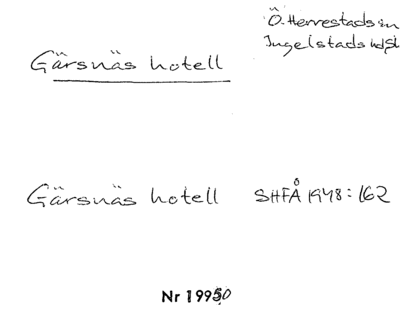 Ö. Herrestads sn
Ingelstads hd Sk
Gärsnäs hotell
Gärsnäs hotell SHFÅ 1948:162
Nr 19950